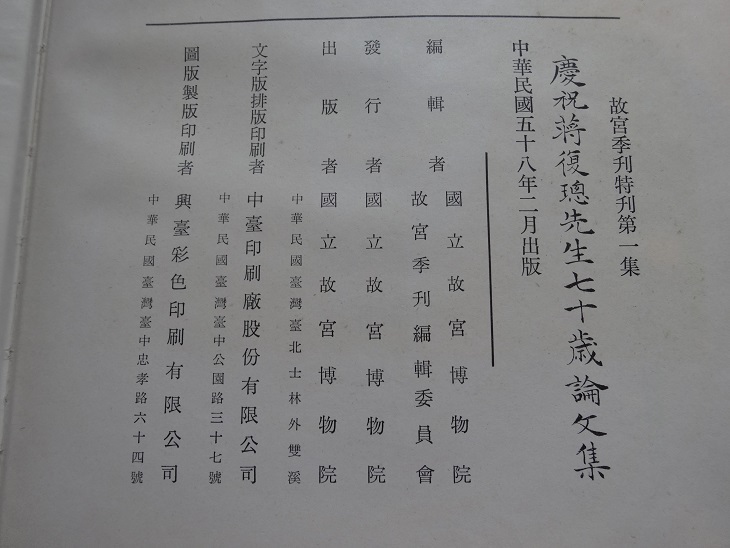 故宮季刊特刊第一集
慶祝蔣復璁先生七十歲論文集
中華民國五十八年二月出版
編輯者
國立故宮博物院
故宮季刊編輯委員會
發行者 國立故宮博物院
出版者 國立故宮博物院
中華民國臺灣臺北士林外雙溪
文字版排版印刷者 中臺印刷廠股份有限公司
中華民國臺灣臺中公園路三十七號
圖版製版印刷者 興臺彩色印刷有限公司
中華民國臺灣臺中忠孝路六十四號